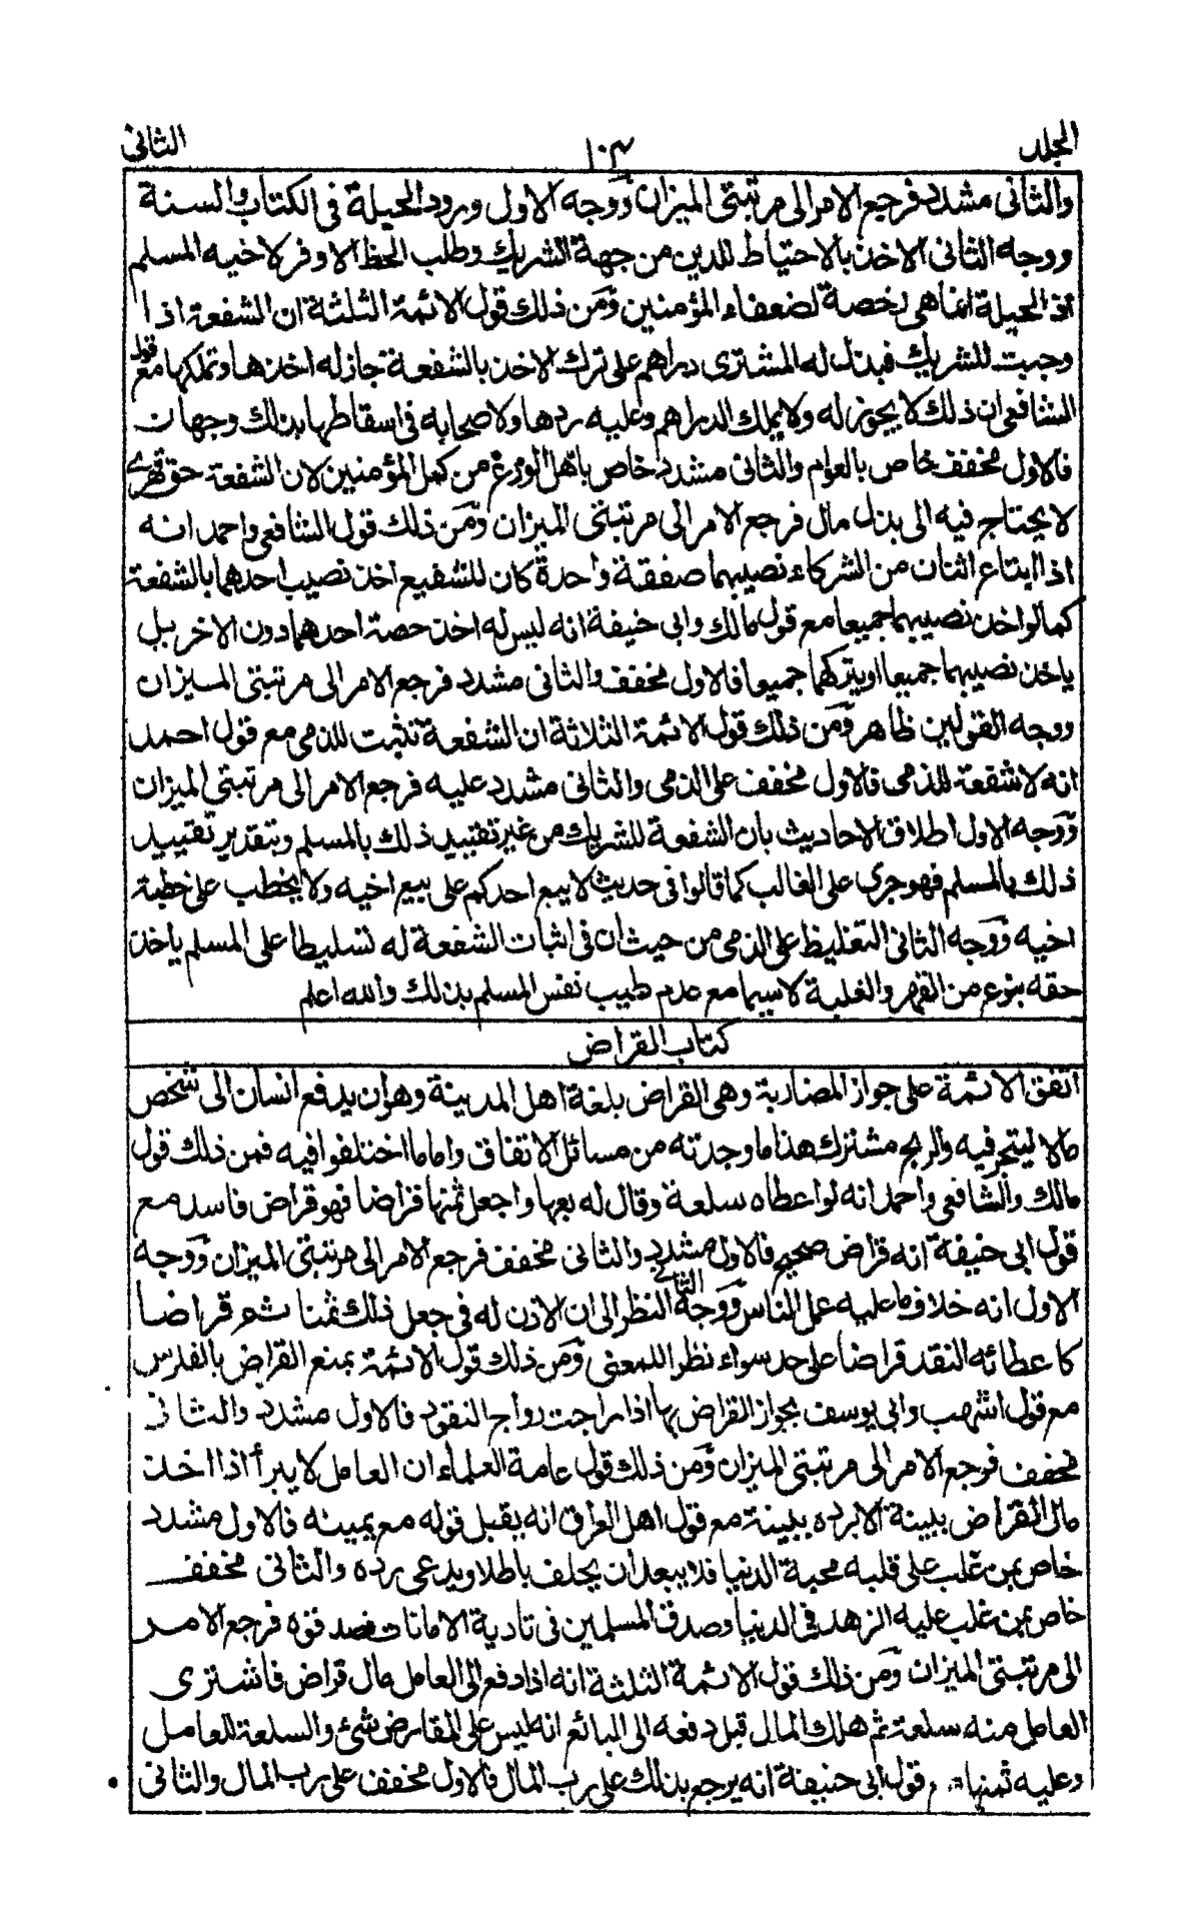 المجلد ١٠٣ الثانى
والثانى مشدد فرجع الامر الى مرتبتى الميزان ووجه الاول ورود الحيلة فى الكتاب والسنة
ووجه الثانى الاخذ بالاحتياط للدين من جهة الشريك وطلب الحظ الاوفر لاخيه المسلم
اذ الحيلة انما هى رخصة لضعفاء المؤمنين ومن ذلك قول الائمة الثلثة ان الشفعة اذا
وجبت للشريك فبذل له المشترى دراهم على ترك الاخذ بالشفعة جاز له اخذها وتملكها مع قول
الشافعى ان ذلك لا يجوز له ولا يملك الدراهم وعليه ردها ولاصحابه فى اسقاطها بذلك وجهان
فالاول مخفف خاص بالعوام والثانى مشدد خاص باهل الورع من كمل المؤمنين لان الشفعة حق قهرى
لا يحتاج فيه الى بذل مال فرجع الامر الى مرتبتى الميزان ومن ذلك قول الشافعى واحمد انه
اذا ابتاع اثنان من الشركاء نصيبهما صفقة واحدة كان للشفيع اخذ نصيب احدهما بالشفعة
كما لو اخذ نصيبهما جميعا مع قول مالك وابى حنيفة انه ليس له اخذ حصة احدهما دون الاخر بل
ياخذ نصيبهما جميعا او يتركهما جميعا فالاول مخفف والثانى مشدد فرجع الامر الى مرتبتى الميزان
ووجه القولين ظاهر ومن ذلك قول الائمة الثلاثة ان الشفعة تثبت للذمى مع قول احمد
انه لا شفعة للذمى فالاول مخفف على الذمى والثانى مشدد عليه فرجع الامر الى مرتبتى الميزان
ووجه الاول اطلاق الاحاديث بان الشفعة للشريك من غير تقييد ذلك بالمسلم وبتقدير تقييد
ذلك بالمسلم فهو جرى على الغالب كما قالوا فى حديث لا يبع احدكم على بيع اخيه ولا يخطب على خطبة
اخيه ووجه الثانى التغليظ على الذمى من حيث ان فى اثبات الشفعة له تسليطا على المسلم ياخذ
حقه بنوع من القهر والغلبة لا سيما مع عدم طيب نفس المسلم بذلك والله اعلم
كتاب القراض
اتفق الائمة على جواز المضاربة وهى القراض بلغة اهل المدينة وهو ان يدفع انسان الى شخص
مالا ليتجر فيه والربح مشترك هذا ما وجدته من مسائل الاتفاق واما ما اختلفوا فيه فمن ذلك قول
مالك والشافعى واحمد انه لو اعطاه سلعة وقال له بعها واجعل ثمنها قراضا فهو قراض فاسد مع
قول ابى حنيفة انه قراض صحيح فالاول مشدد والثانى مخفف فرجع الامر الى مرتبتى الميزان ووجه
الاول انه خلاف ما عليه عمل الناس ووجه الثانى النظر الى ان الاذن له فى جعل ذلك ثمنا ثم قراضا
كاعطائه النقد قراضا على حد سواء نظرا للمعنى ومن ذلك قول الائمة بمنع القراض بالفلوس
مع قول اشهب وابى يوسف بجواز القراض بها اذا راجت رواج النقود فالاول مشدد والثانى
مخفف فرجع الامر الى مرتبتى الميزان ومن ذلك قول عامة العلماء ان العامل لا يبرأ اذا اخذ
مال القراض ببينة الا برده ببينة مع قول اهل العراق انه يقبل قوله مع يمينه فالاول مشدد
خاص بمن غلب على قلبه محبة الدنيا فلا يبعد ان يحلف باطلا ويدعى رده والثانى مخفف
خاص بمن غلب عليه الزهد فى الدنيا وصدق المسلمين فى تادية الامانات فرجع الامر
الى مرتبتى الميزان ومن ذلك قول الائمة الثلثة انه اذا دفع الى العامل مال قراض فاشترى
العامل منه سلعة ثم هلك المال قبل دفعه الى البائع انه ليس على المقارض شئ والسلعة للعامل
وعليه ثمنها قول ابى حنيفة انه يرجع بذلك على رب المال فالاول مخفف على رب المال والثانى